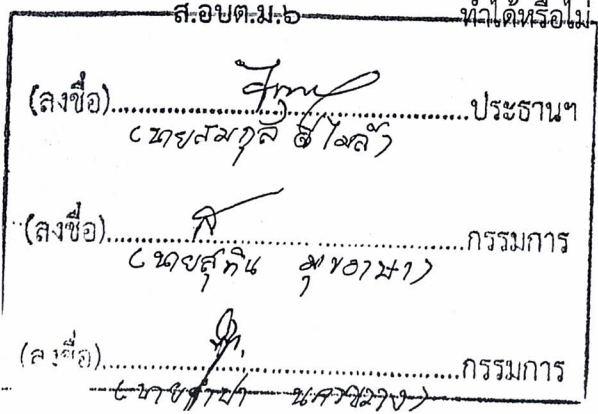 ส.อบต.ม.๖ ทำได้หรือไม่
(ลงชื่อ)..........ประธานฯ
(นายสมกุล
(ลงชื่อ)..........กรรมการ
(นายสุทิน มุขอาษา)
(ลงชื่อ)..........กรรมการ
(นายคำปา